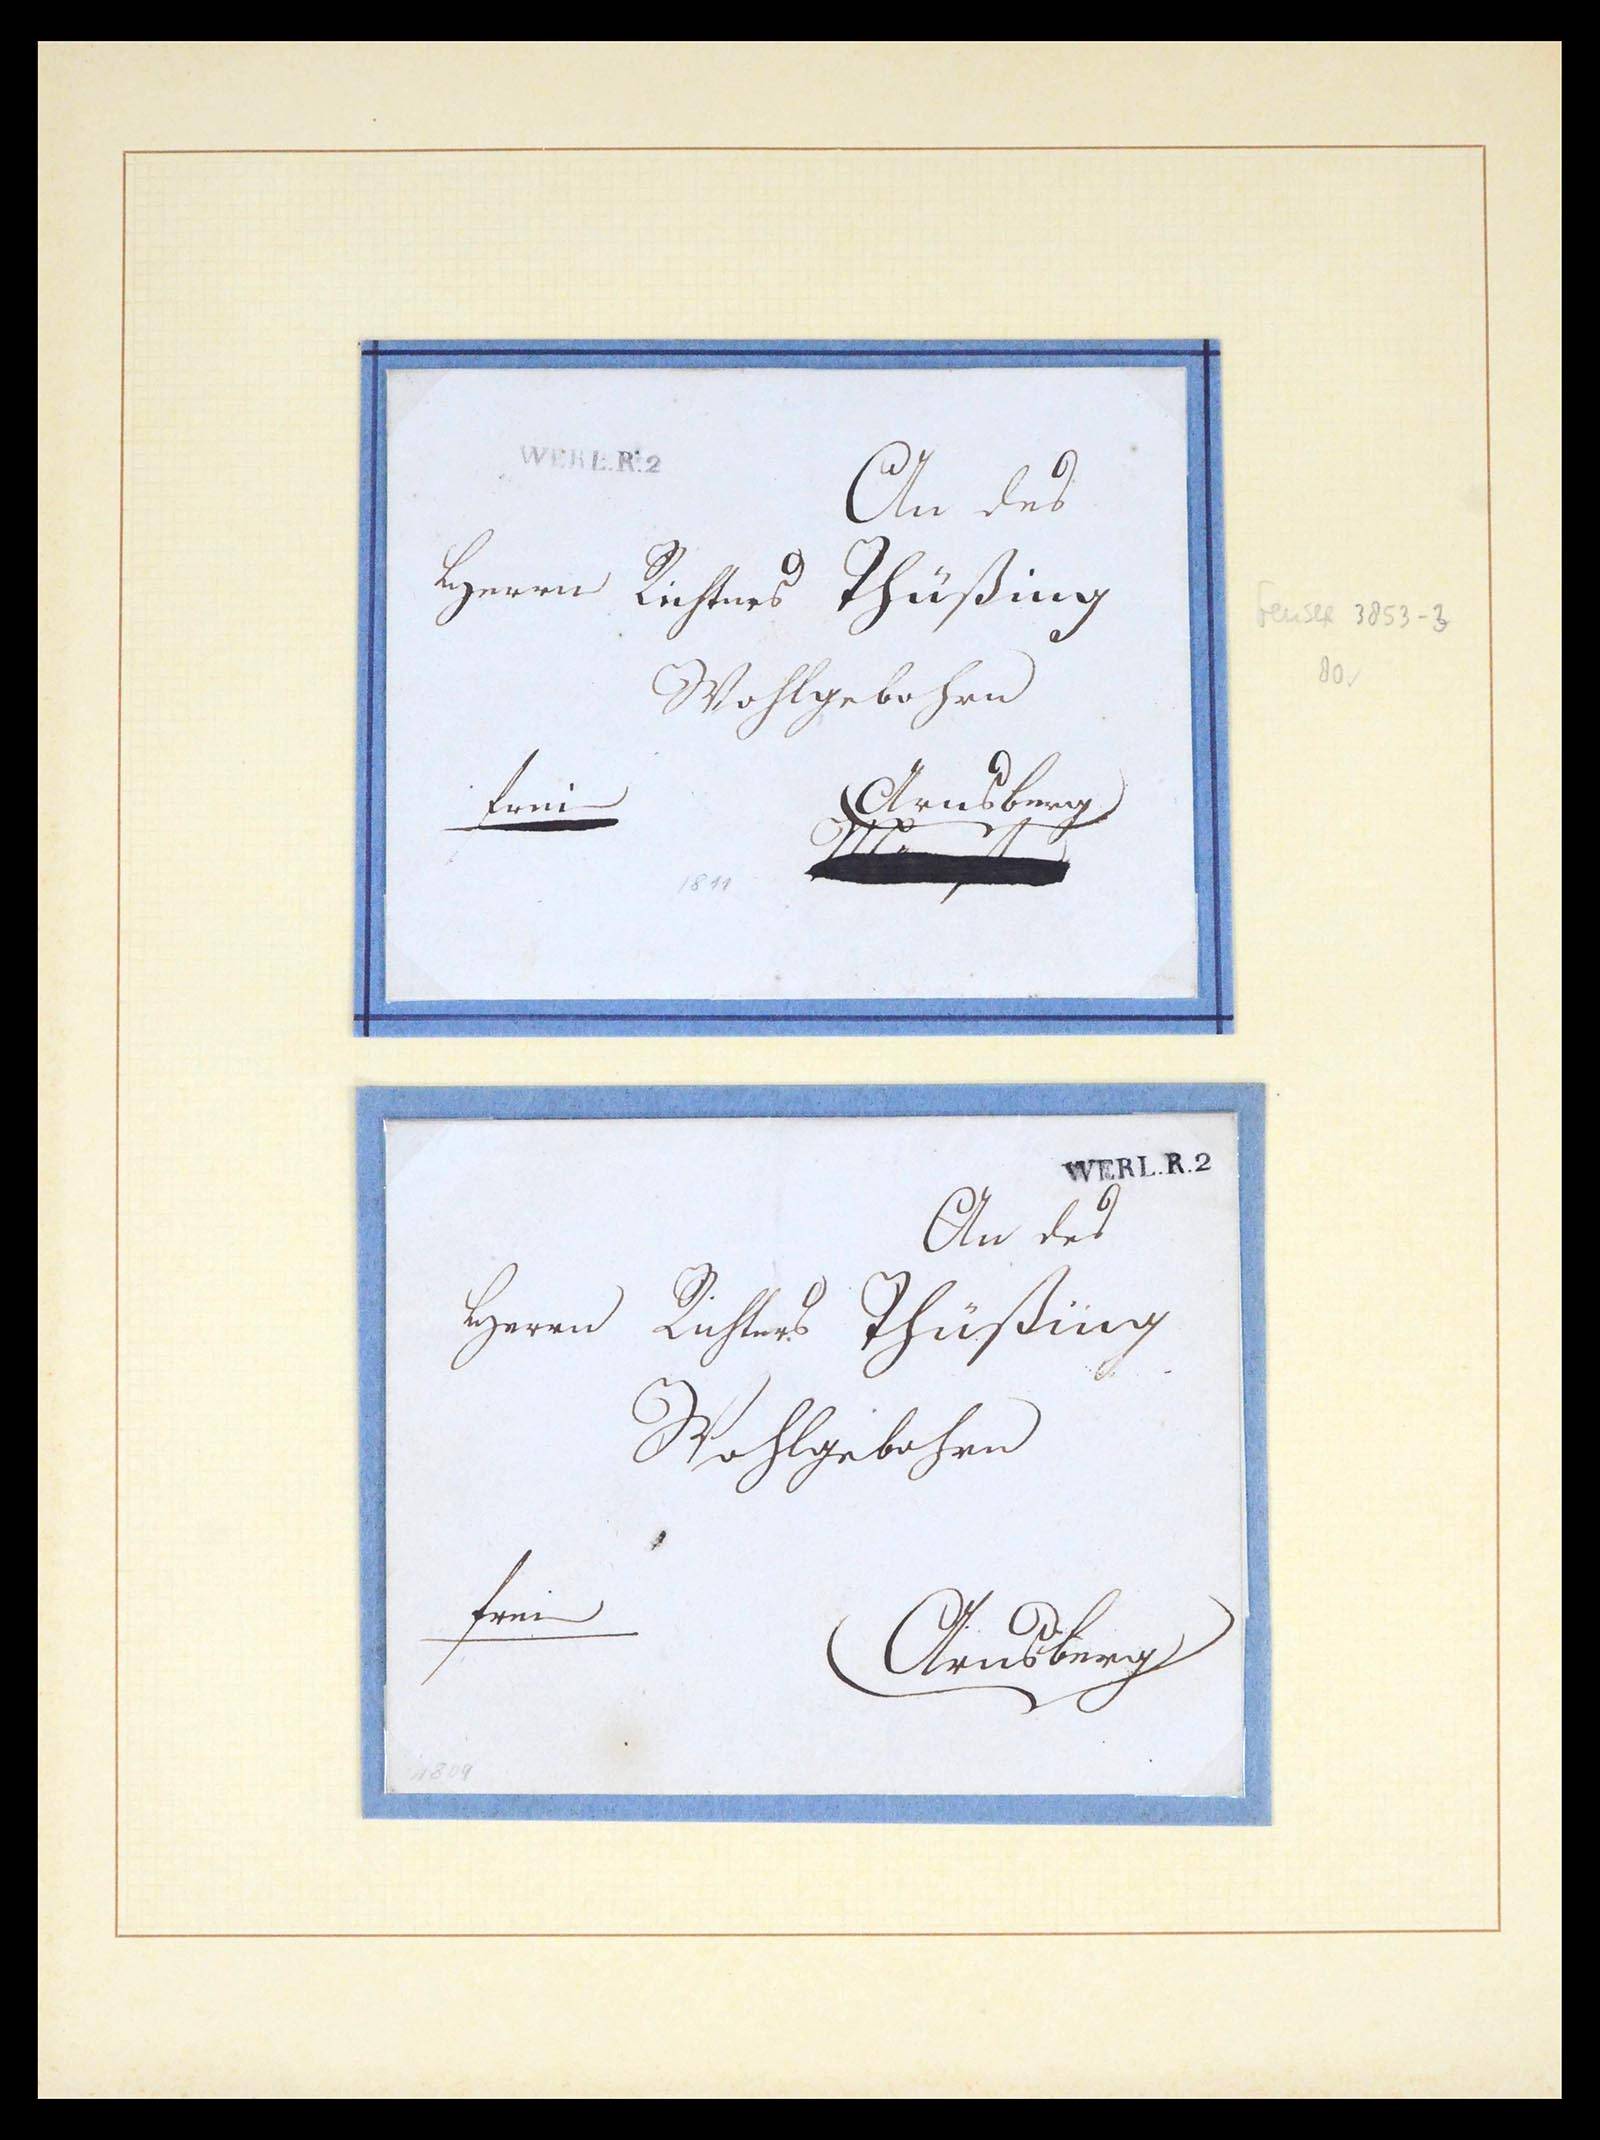 WERL.R.2
An des
Herrn Richters Thüßing
Wohlgebohrn
frei
Arnsberg
1811
Feuser 3853-3
80,
WERL.R.2
An des
Herrn Richters Thüßing
Wohlgebohrn
frei
Arnsberg
1809